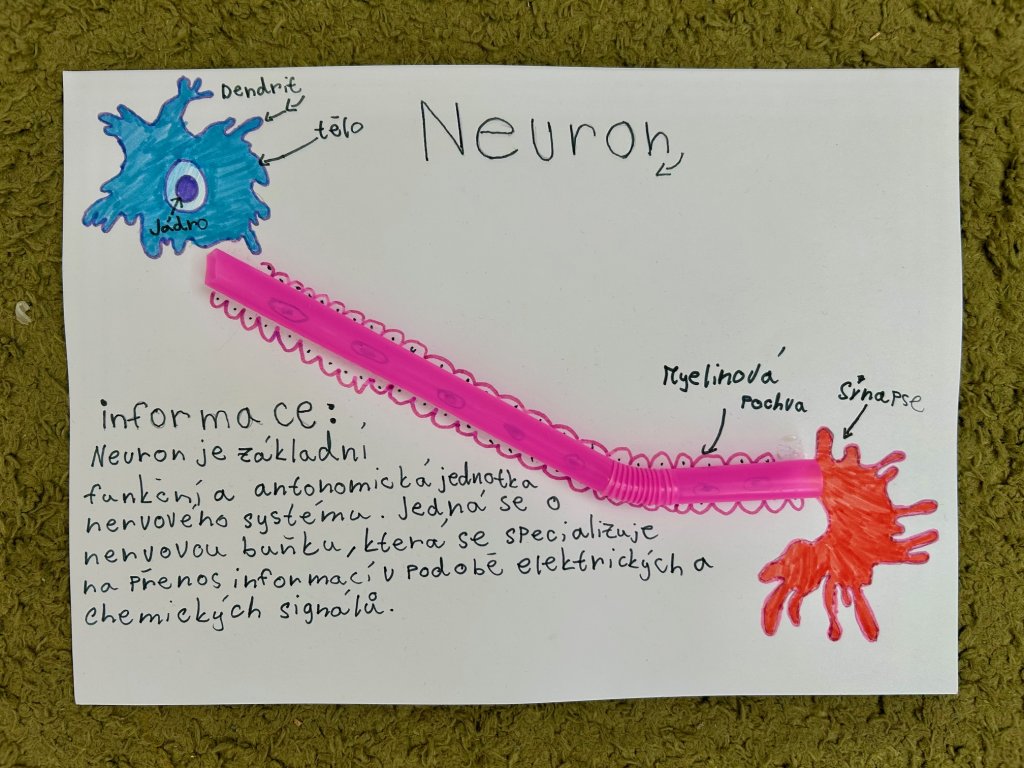 Dendrit
tělo
Neuron
Jádro
Myelinová
pochva
Sýnapse
informace:
Neuron je základní
funkční a antonomická jednotka
nervového systému. Jedná se o
nervovou buňku, která se specializuje
na přenos informací v podobě elektrických a
chemických signálů.